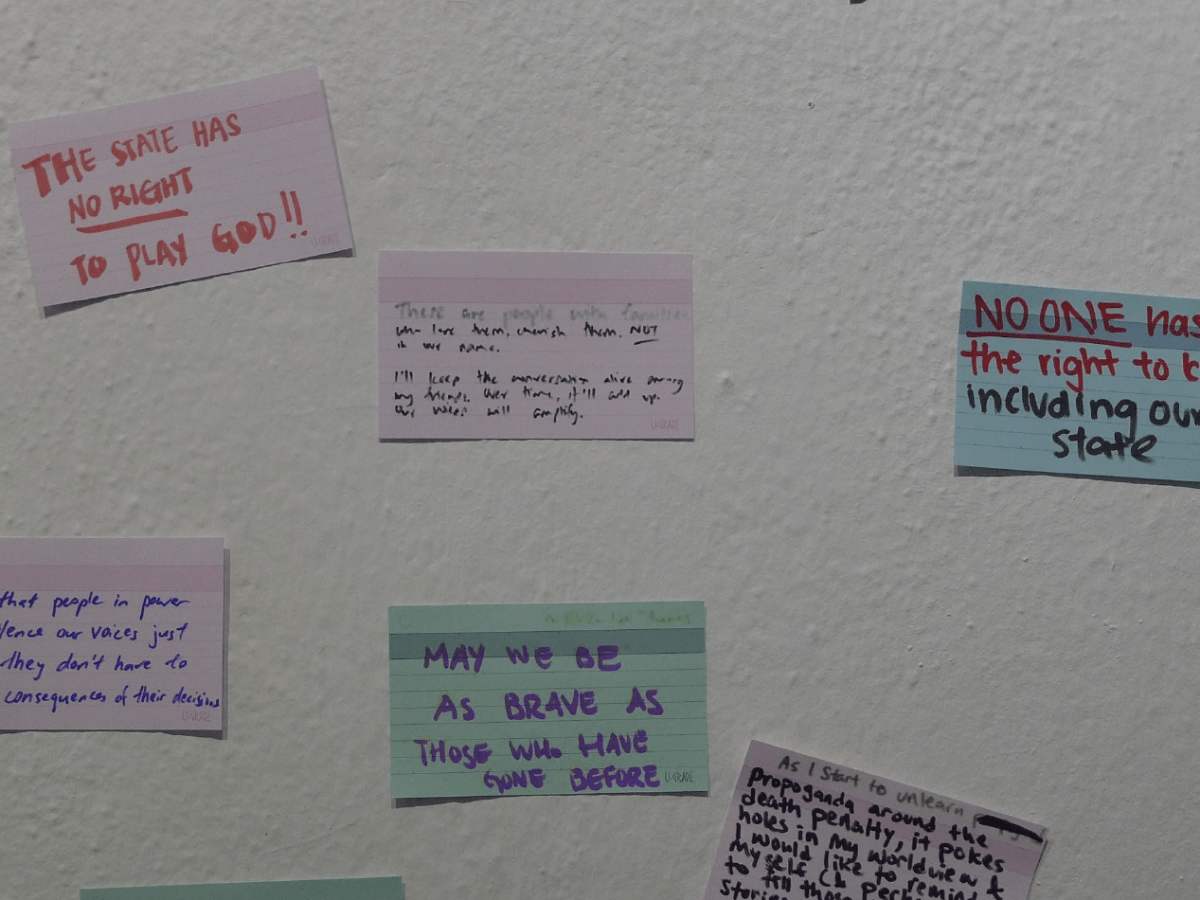 THE STATE HAS
NO RIGHT
TO PLAY GOD!!
U-GRADE
These are people with families
who love them, cherish them. NOT
in our name.
I'll keep the conversation alive among
my friends. Over time, it'll add up.
Our voices will amplify.
U-GRADE
NO ONE has
the right to
including our
state
that people in power
our voices just
they don't have to
consequences of their decisions
U-GRADE
MAY WE BE
AS BRAVE AS
THOSE WHO HAVE
GONE BEFORE
U-GRADE
As I start to unlearn
propoganda around the
death penalty, it pokes
holes in my worldview &
I would like to remind
myself
to fill those